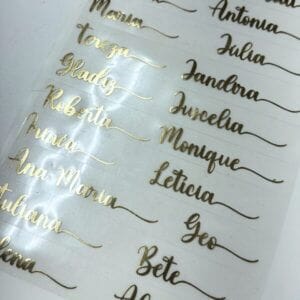 Maria
Tereza
Gladis
Roberta
Ana Maria
Juliana
Antonia
Julia
Jandora
Juscelia
Monique
Leticia
Geo
Bete